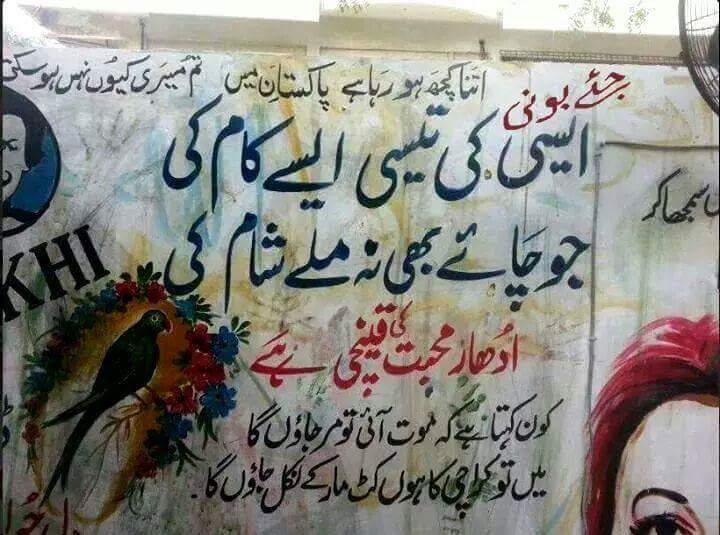 اتنا کچھ ہو رہا ہے پاکستان میں تم میری کیوں نہیں ہو سکتی
جئے بونی
ایسی کی تیسی ایسے کام کی
جو چائے بھی نہ ملے شام کی
سمجھا کر
KHI
ادھار محبت کی قینچی ہے
کون کہتا ہے کہ موت آئی تو مر جاؤں گا
میں تو کراچی کا ہوں کٹ مار کے نکل جاؤں گا۔
دل